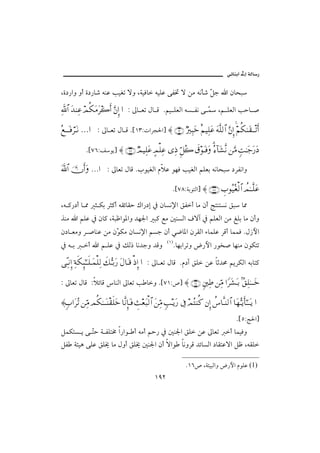 رسالة إلى ابنتاي
سبحان الله جلّ شأنه من لا تخفى عليه خافية، ولا تغيب عنه شاردة أو واردة،
صاحب العلم، سمّى نفسه العليم. قال تعالى : ﴿ إِنَّ أَكْرَمَكُمْ عِندَ ٱللَّهِ
أَتْقَىٰكُمْ إِنَّ ٱللَّهَ عَلِيمٌ خَبِيرٌ ﴾ [الحجرات:١٣]. قال تعالى : ﴿... نَرْفَعُ
دَرَجَٰتٍ مَّن نَّشَآءُ وَفَوْقَ كُلِّ ذِى عِلْمٍ عَلِيمٌ ﴾ [يوسف:٧٦].
وانفرد سبحانه بعلم الغيب فهو علّام الغيوب. قال تعالى : ﴿... وَأَنَّ ٱللَّهَ
عَلَّٰمُ ٱلْغُيُوبِ ﴾ [التوبة:٧٨].
مما سبق نستنتج أن ما أخفق الإنسان في إدراك حقائقه أكثر بكثير مما أدركه،
وأن ما بلغ من العلم في آلاف السنين مع كبير الجهد والمواظبة، كان في علم الله منذ
الأزل. فمما أقر علماء القرن الماضي أن جسم الإنسان مكوّن من عناصر ومعادن
تتكون منها صخور الأرض وترابها(١) وقد وجدنا ذلك في علم الله أخبر به في
كتابه الكريم محدثاً عن خلق آدم. قال تعالى : ﴿ إِذْ قَالَ رَبُّكَ لِلْمَلَٰٓئِكَةِ إِنِّى
خَٰلِقٌۢ بَشَرًا مِّن طِينٍ ﴾ [ص:٧١]. وخاطب تعالى الناس قائلاً: قال تعالى :
﴿ يَٰٓأَيُّهَا ٱلنَّاسُ إِن كُنتُمْ فِى رَيْبٍ مِّنَ ٱلْبَعْثِ فَإِنَّا خَلَقْنَٰكُم مِّن تُرَابٍ ﴾
[الحج:٥].
وفيما أخبر تعالى عن خلق الجنين في رحم أمه أطواراً مختلفة حتّى يستكمل
خلقه، ظل الاعتقاد السائد قروناً طوالاً أن الجنين يخلق أول ما يخلق على هيئة طفل
(١) علوم الأرض والبيئة، ص١٦.
١٩٢